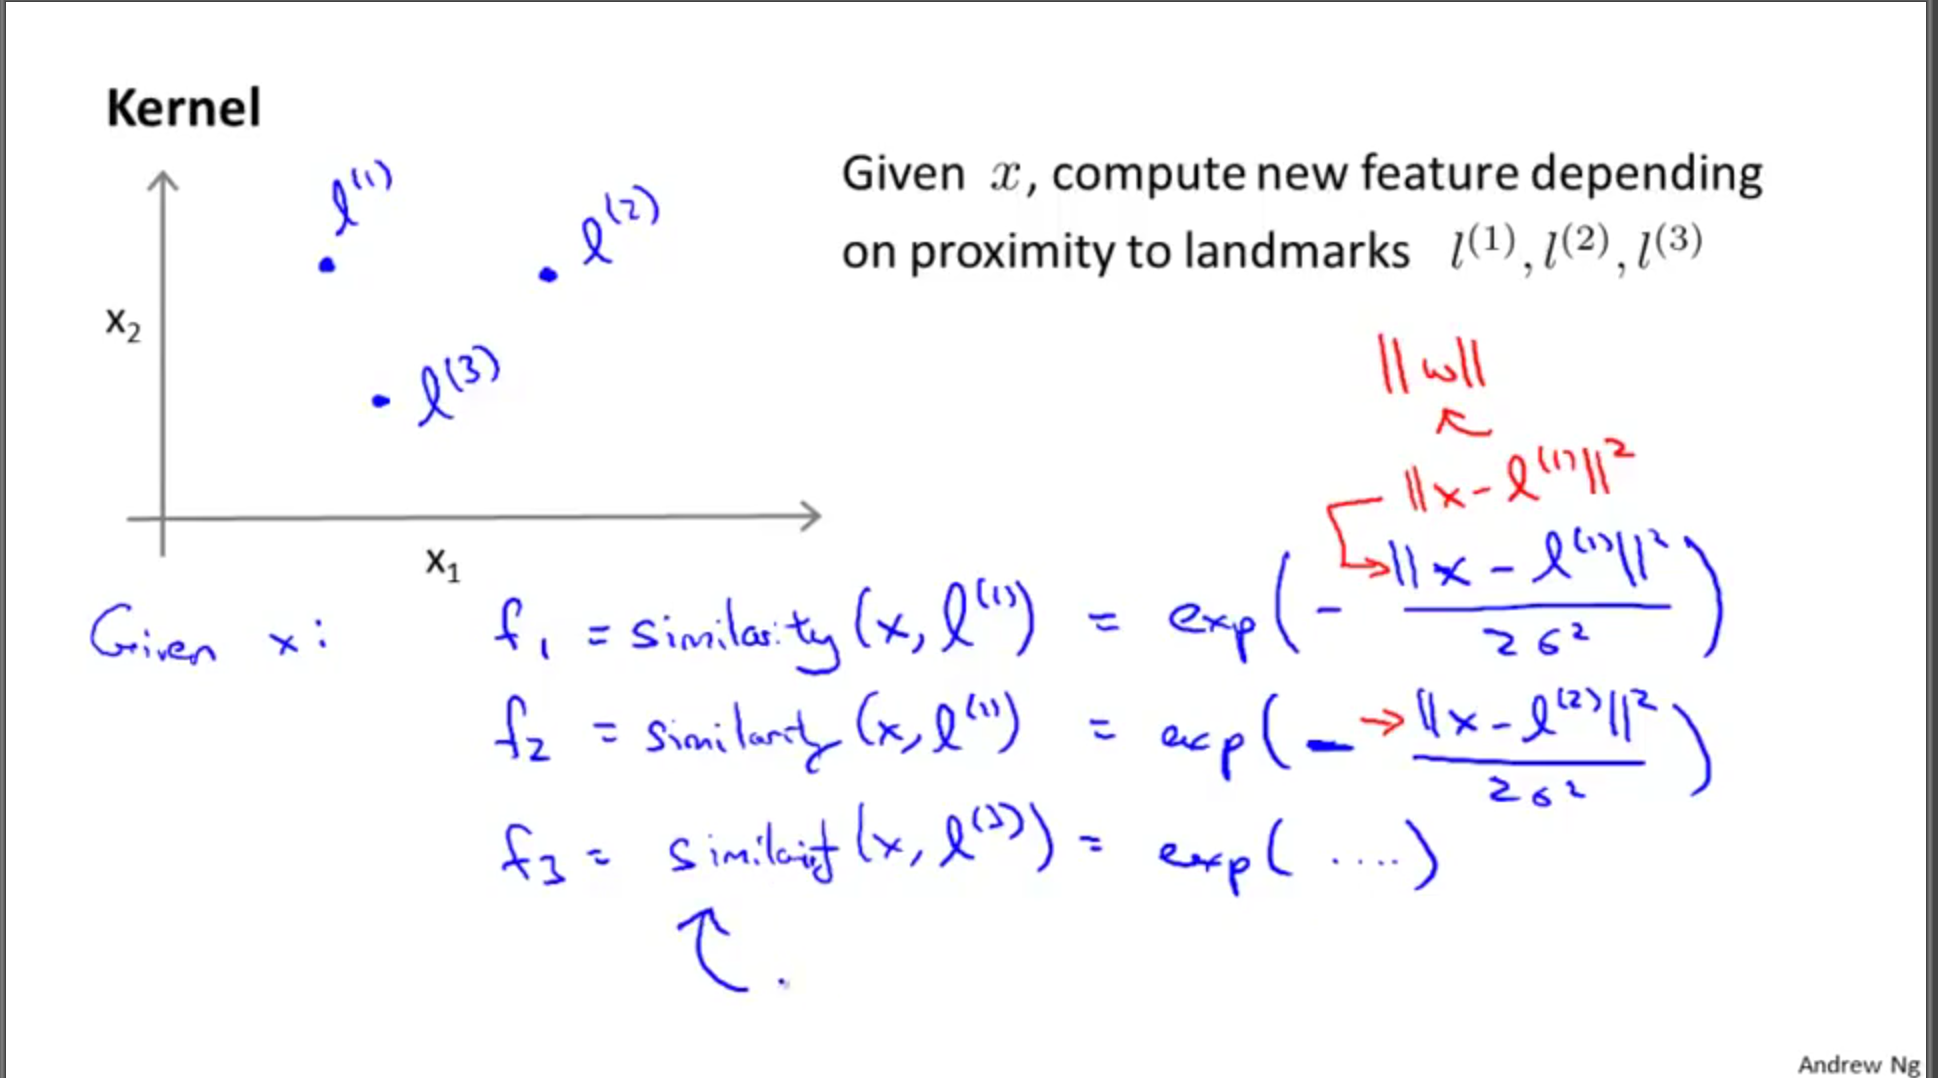 Kernel
l⁽¹⁾
l⁽²⁾
x₂
l⁽³⁾
x₁
Given x, compute new feature depending
on proximity to landmarks l⁽¹⁾, l⁽²⁾, l⁽³⁾
||w||
||x - l⁽¹⁾||²
Given x: f₁ = similarity (x, l⁽¹⁾) = exp(- ||x - l⁽¹⁾||² / 2σ²)
f₂ = similarity (x, l⁽¹⁾) = exp(- → ||x - l⁽²⁾||² / 2σ²)
f₃ = similarity (x, l⁽³⁾) = exp( ....)
Andrew Ng